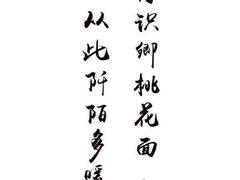 识卿桃花面
从此阡陌多暖